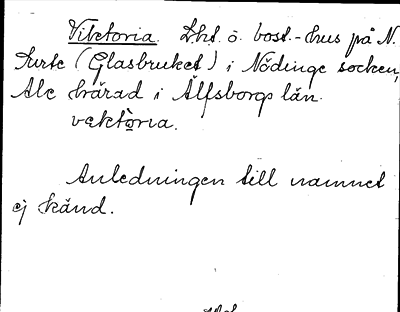 Viktoria. Lht. o. bost.-hus på N.
Surte (Glasbruket) i Nödinge socken,
Ale härad i Älfsborgs län.
vektòria.
Anledningen till namnet
ej känd.